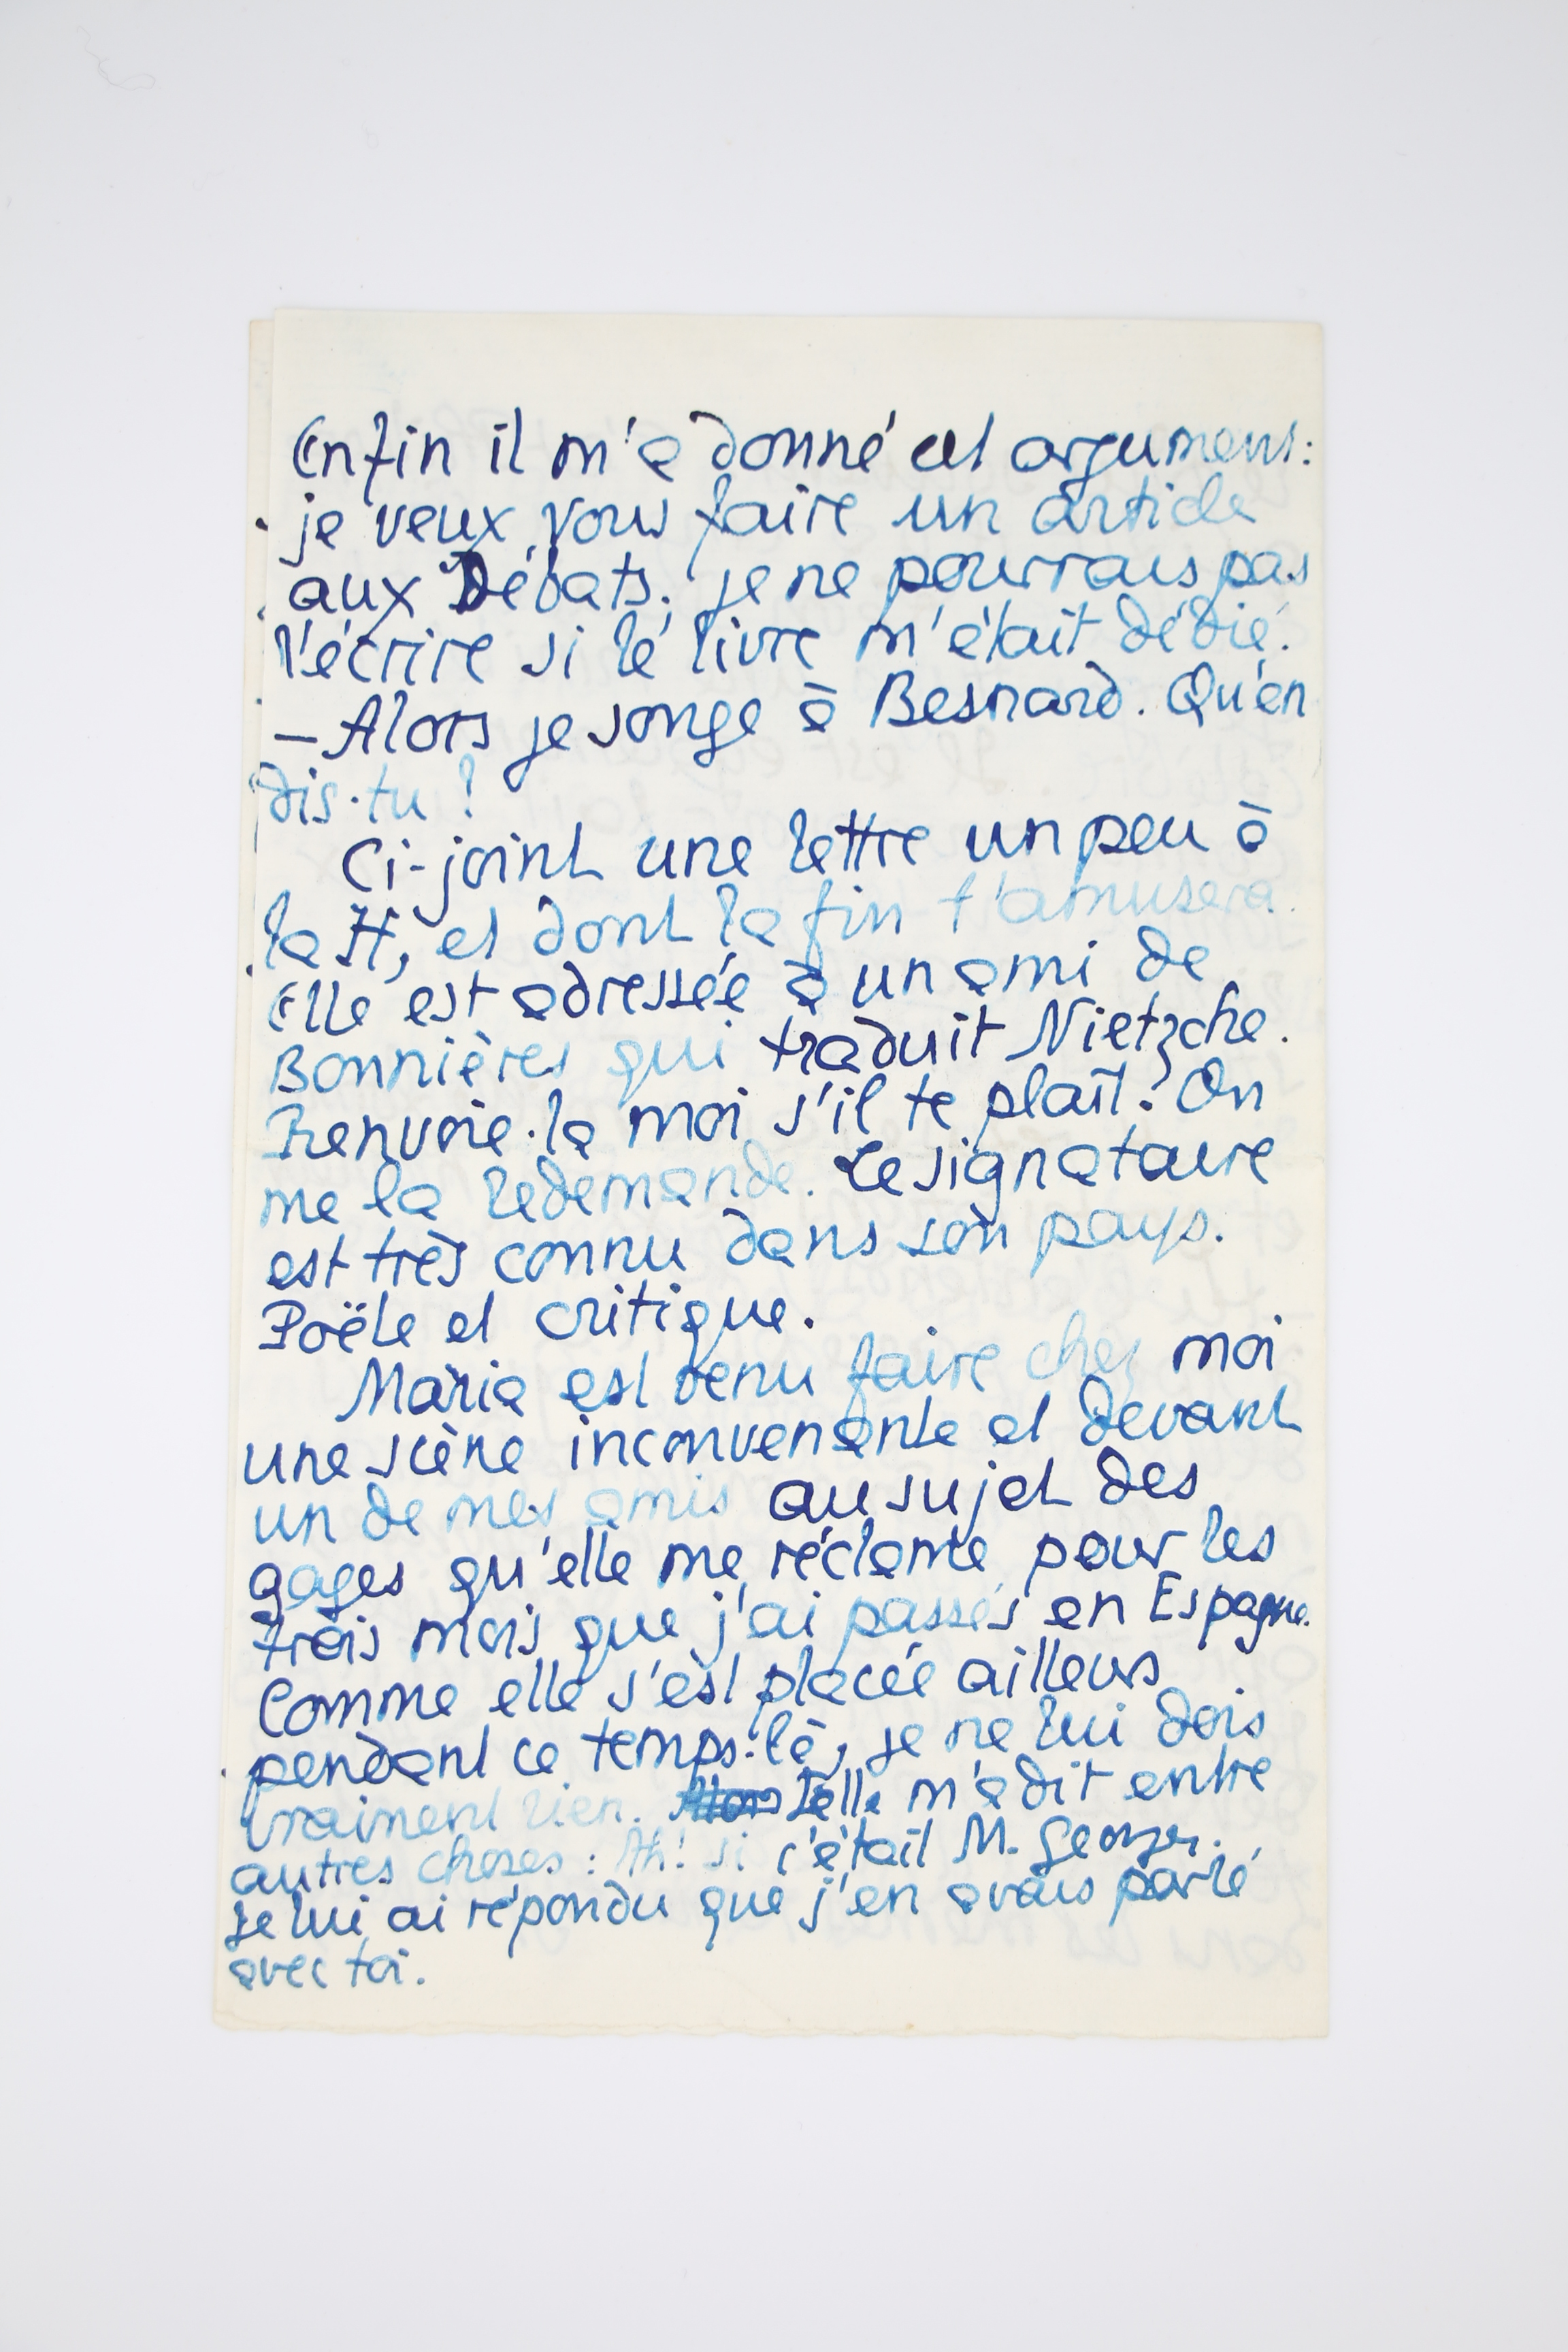 Enfin il m'a donné cet argument:
je veux vous faire un article
aux Débats; je ne pourrais pas
l'écrire si le livre m'était dédié.
— Alors je songe à Besnard. Qu'en
dis-tu ?
Ci-joint une lettre un peu à
la H, et dont la fin t'amusera.
Elle est adressée à un ami de
Bonnières qui traduit Nietzche.
Renvoie-la moi s'il te plaît? On
me la redemande. Le signataire
est très connu dans son pays.
Poëte et critique.
Maria est venu faire chez moi
une scène inconvenante et devant
un de mes amis au sujet des
gages qu'elle me réclame pour les
trois mois que j'ai passés en Espagne.
Comme elle s'est placée ailleurs
pendant ce temps-là, je ne lui dois
vraiment rien. Elle m'a dit entre
autres choses : Ah! si c'était M. Georges.
Je lui ai répondu que j'en avais parlé
avec toi.